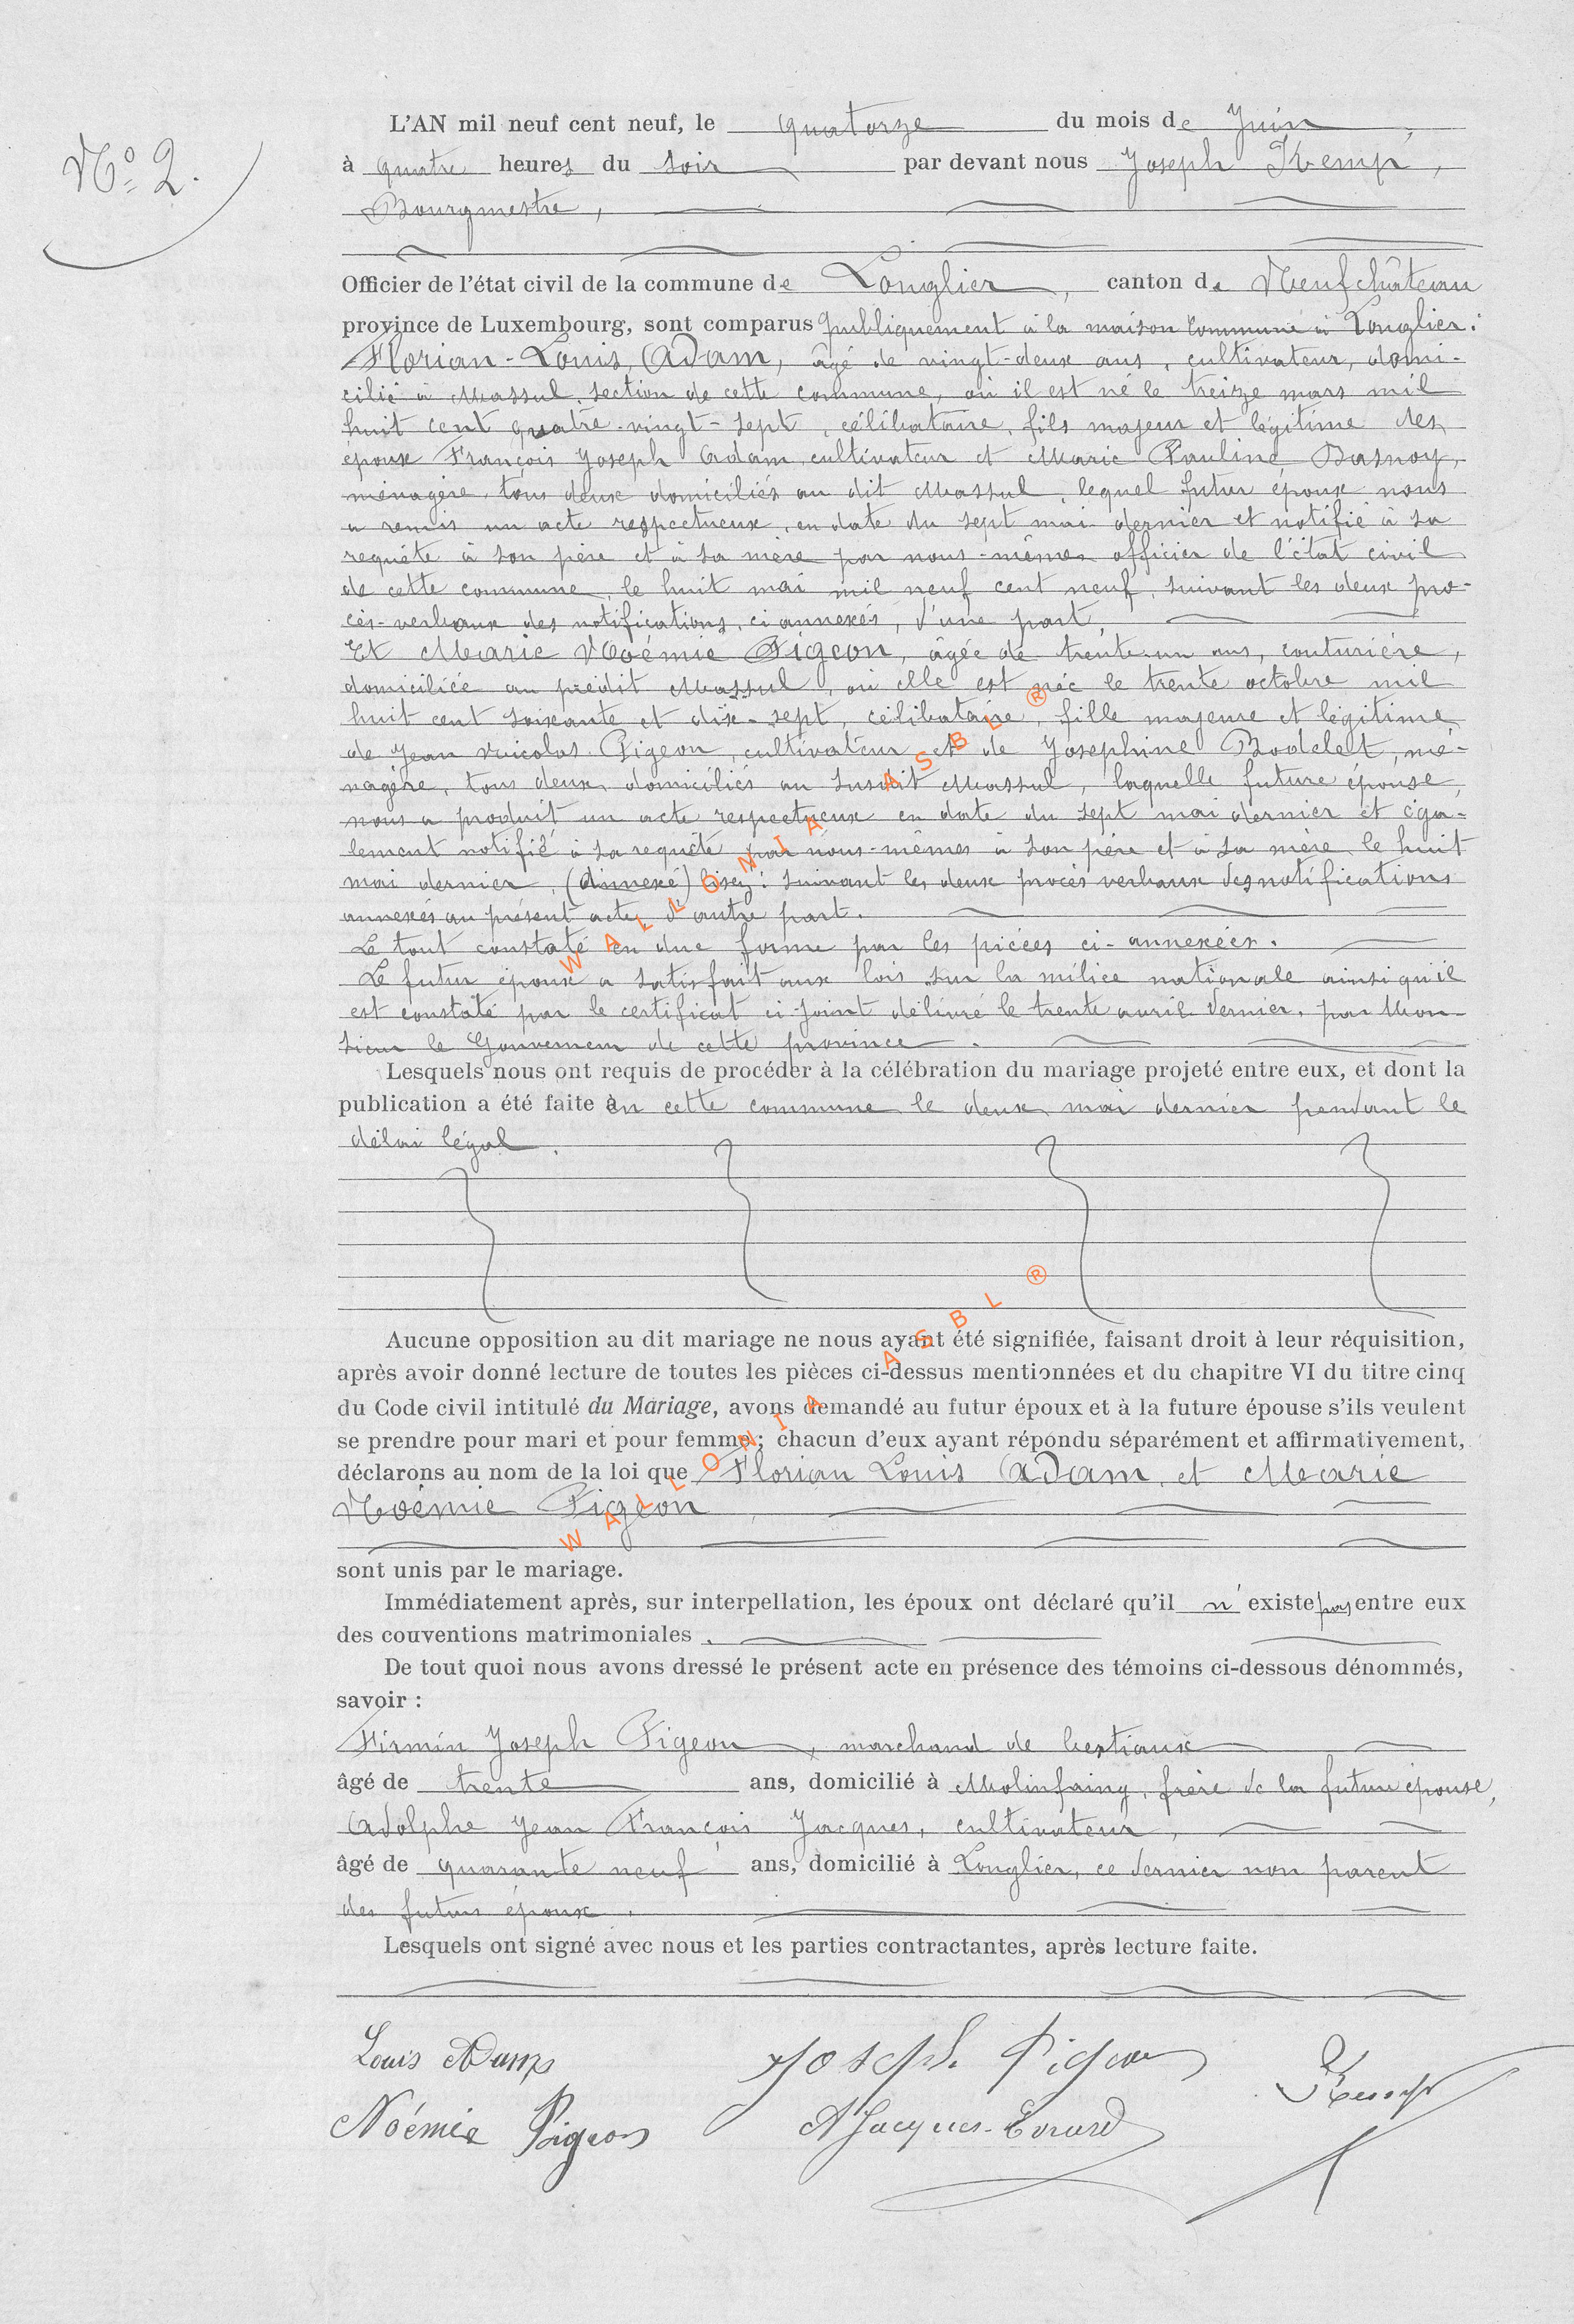 N° 2.
L'AN mil neuf cent neuf, le quatorze du mois de Juin,
à quatre heures du soir par devant nous Joseph Kemp,
Bourgmestre,
Officier de l'état civil de la commune de Longlier, canton de Neufchâteau
province de Luxembourg, sont comparus publiquement à la maison commune à Longlier:
Florian-Louis, Adam, âgé de vingt-deux ans, cultivateur, domi-
cilié à Massul, section de cette commune, où il est né le treize mars mil
huit cent quatre-vingt-sept, célibataire, fils majeur et légitime des
époux François Joseph Adam, cultivateur et Marie Pauline Basnoy,
ménagère, tous deux domiciliés au dit Massul, lequel futur époux nous
a remis un acte respectueux, en date du sept mai dernier et notifié à sa
requête à son père et à sa mère par nous-mêmes officier de l'état civil
de cette commune, le huit mai mil neuf cent neuf, suivant les deux pro-
cès-verbaux des notifications, ci annexés, d'une part,
Et Marie Noémie Pigeon, âgée de trente-un ans, couturière,
domiciliée au prédit Massul, où elle est née le trente octobre mil
huit cent soixante et dix-sept, célibataire, fille majeure et légitime
de Jean Nicolas Pigeon, cultivateur et de Josephine Bodelet, mé-
nagère, tous deux domiciliés au susdit Massul, laquelle future épouse,
nous a produit un acte respectueux en date du sept mai dernier et éga-
lement notifié à sa requête par nous-mêmes à son père et à sa mère le huit
mai dernier, (annexé) lisez: suivant les deux procès verbaux des notifications
annexés au présent acte, d'autre part.
Le tout constaté en due forme par les pièces ci-annexées.
Le futur époux a satisfait aux lois sur la milice nationale ainsi qu'il
est constaté par le certificat ci-joint délivré le trente avril dernier, par Mon-
sieur le Gouverneur de cette province.
Lesquels nous ont requis de procéder à la célébration du mariage projeté entre eux, et dont la
publication a été faite en cette commune le deux mai dernier pendant le
délai légal.
Aucune opposition au dit mariage ne nous ayant été signifiée, faisant droit à leur réquisition,
après avoir donné lecture de toutes les pièces ci-dessus mentionnées et du chapitre VI du titre cinq
du Code civil intitulé du Mariage, avons demandé au futur époux et à la future épouse s'ils veulent
se prendre pour mari et pour femme; chacun d'eux ayant répondu séparément et affirmativement,
déclarons au nom de la loi que Florian Louis Adam, et Marie
Noémie Pigeon
sont unis par le mariage.
Immédiatement après, sur interpellation, les époux ont déclaré qu'il n'existe pas entre eux
des conventions matrimoniales.
De tout quoi nous avons dressé le présent acte en présence des témoins ci-dessous dénommés,
savoir :
Firmin Joseph Pigeon, marchand de bestiaux
âgé de trente ans, domicilié à Molinfaing, frère de la future épouse,
Adolphe Jean François Jacques, cultivateur,
âgé de quarante neuf ans, domicilié à Longlier, ce dernier non parent
des futurs époux.
Lesquels ont signé avec nous et les parties contractantes, après lecture faite.
Louis Adam Joseph Pigeon Kemp
Noémie Pigeon A Jacques-Evrard
WALLONIA ASBL ®
WALLONIA ASBL ®